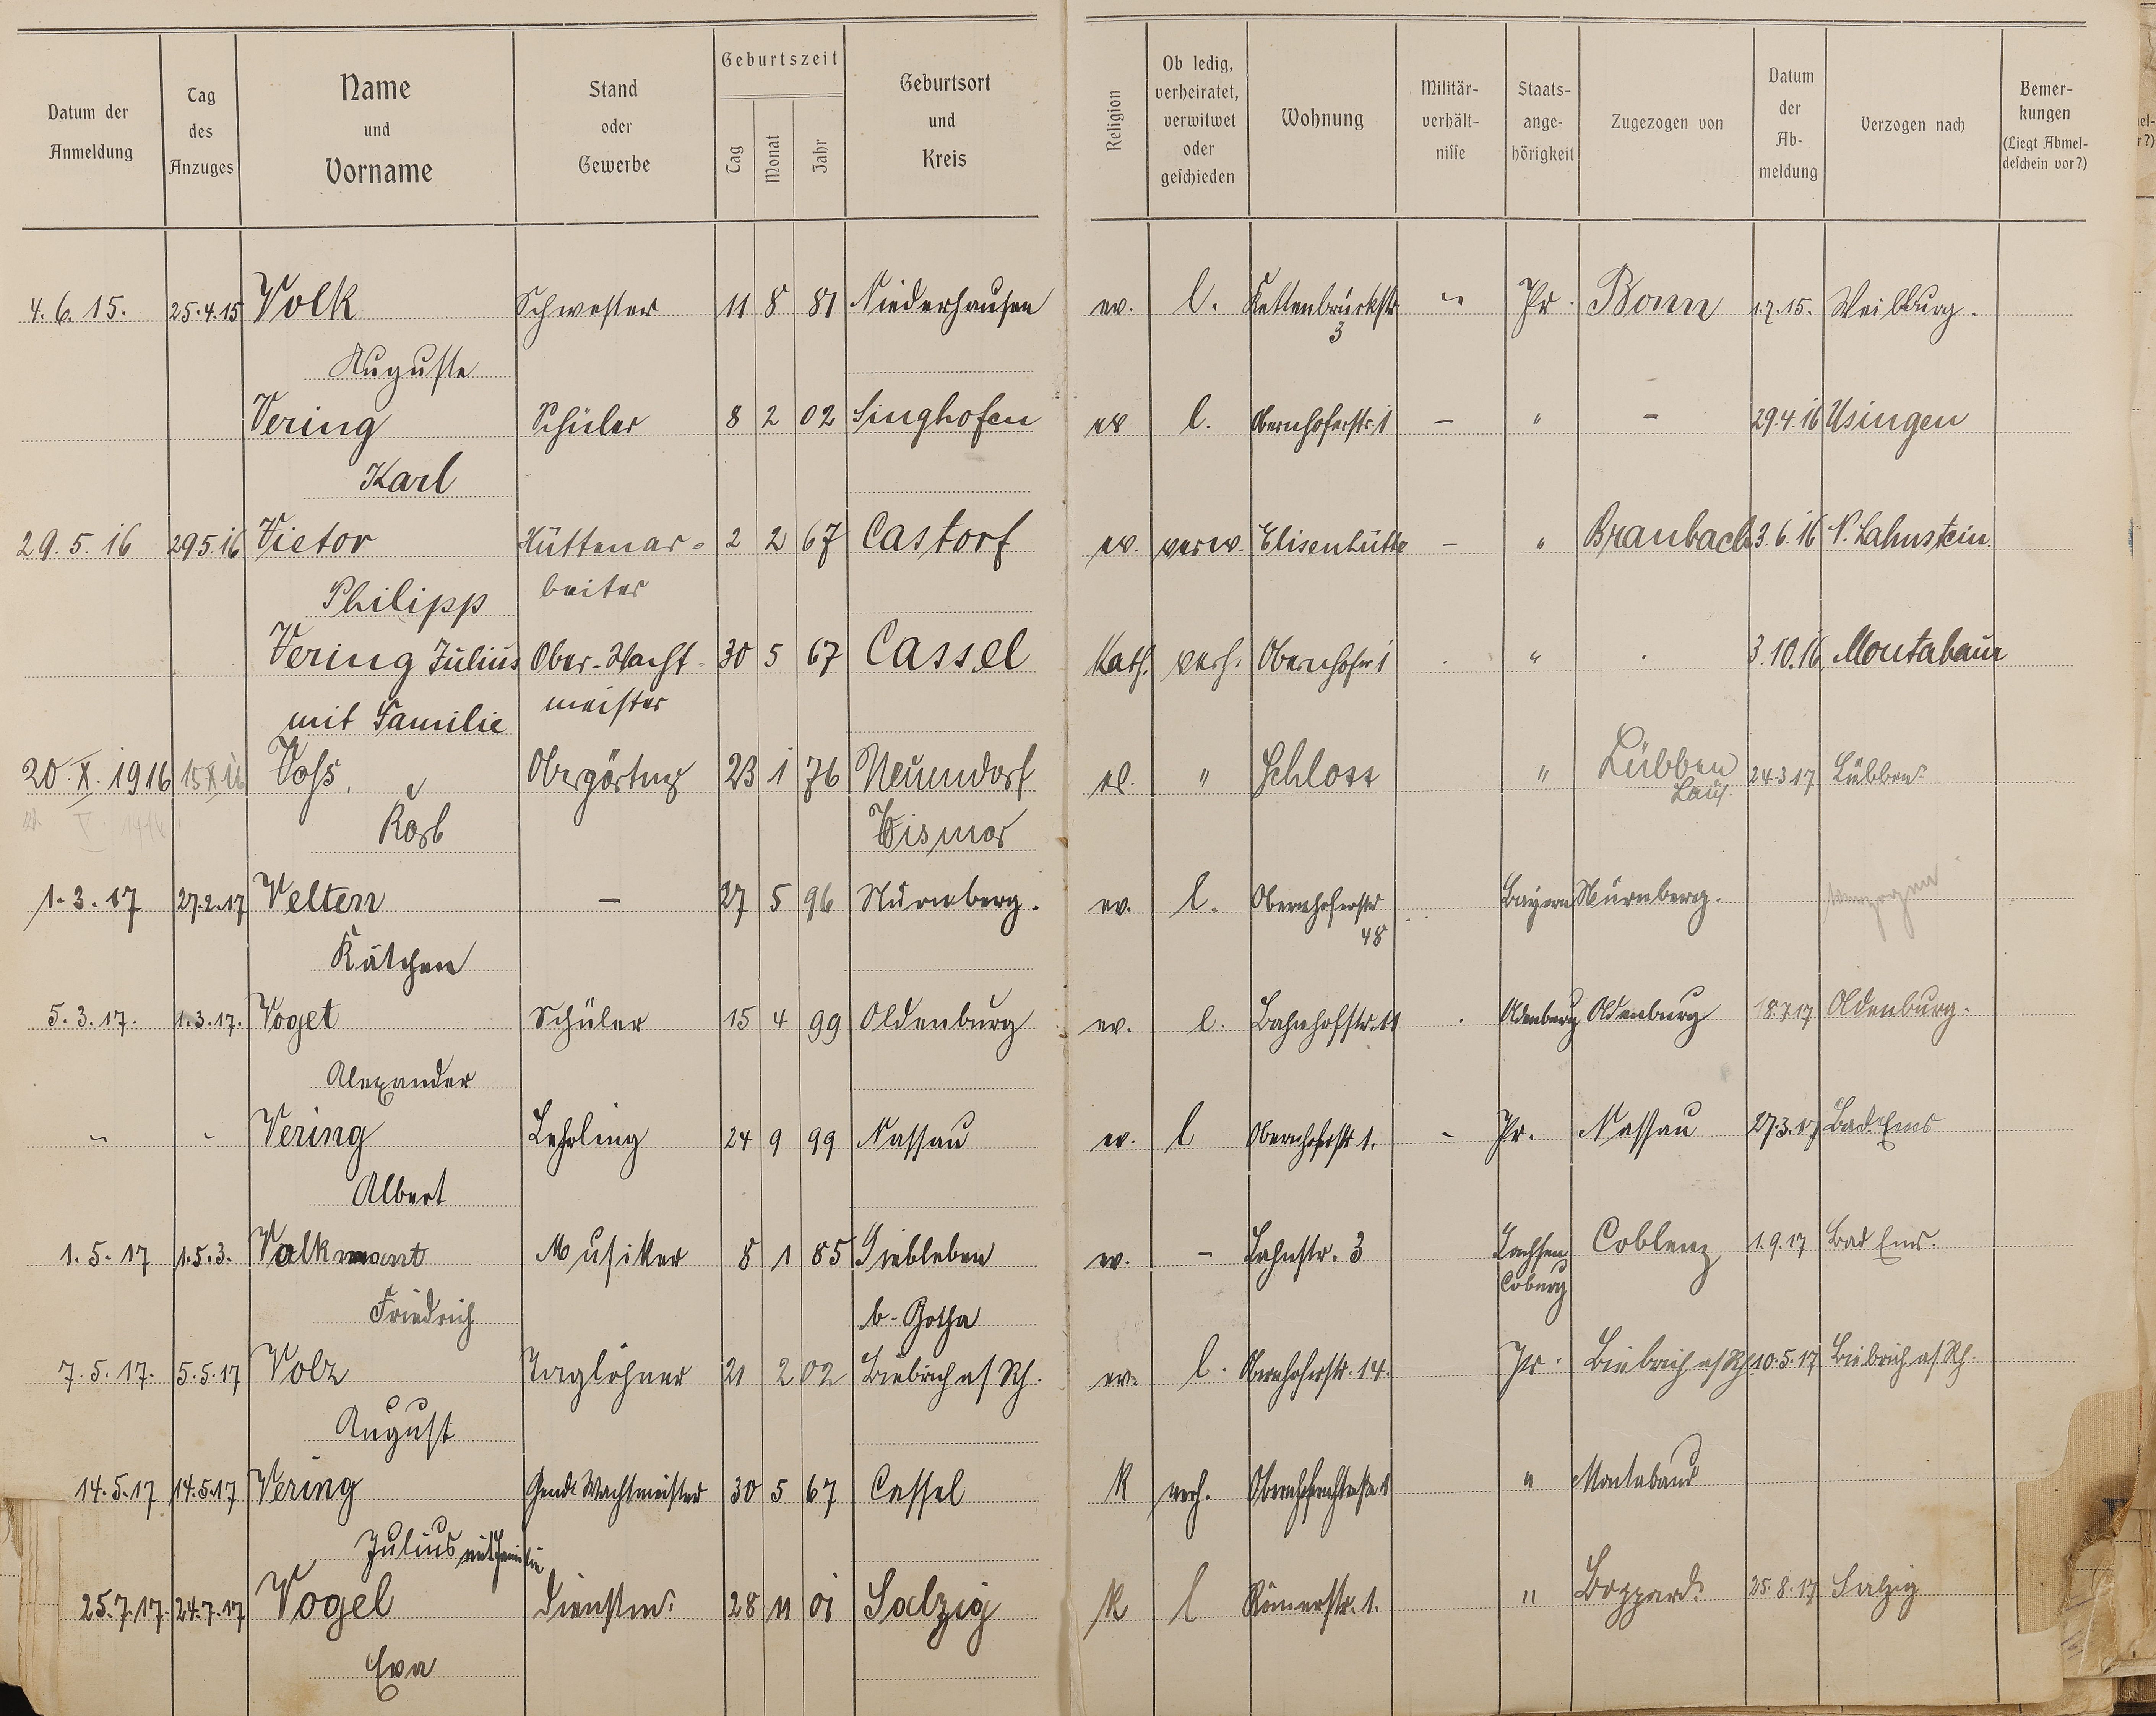 Datum der Anmeldung
Tag des Anzuges
Name und Vorname
Stand oder Gewerbe
Geburtszeit
Tag Monat Jahr
Geburtsort und Kreis
Religion
Ob ledig, verheiratet, verwitwet oder geschieden
Wohnung
Militär-verhält-nisse
Staats-ange-hörigkeit
Zugezogen von
Datum der Ab-meldung
Verzogen nach
Bemer-kungen
(Liegt Abmel-deschein vor?)
4.6.15. 25.4.15 Volk Schwester 11 8 81 Niederhausen ev. l. Kettenbrückstr 3 " Pr. Bonn 1.7.15. Weilburg.
Auguste
Vering Schüler 8 2 02 Singhofen ev l. Obernhoferstr. 1 – " – 29.4.16 Usingen
Karl
29.5.16 29.5.16 Vietor Hüttenar= 2 2 67 Castorf ev. verw. Elisenhütte – " Braubach 3.6.16 N. Lahnstein.
Philipp beiter
Vering Julius Ober-Wacht- 30 5 67 Cassel Kath. verh. Obernhofer 1 . " . 3.10.16 Montabaur
mit Familie meister
20.X.1916 15 X 16 Voss, Obergärtner 23 1 76 Neuendorf ev. " Schloss " Lübben 24.3.17 Lübben
Laus.
Karl Wismar
1.3.17 27.2.17 Velten – 27 5 96 Nürnberg. ev. l. Obernhoferstr 48 Bayern Nürnberg. verzogen
Kätchen
5.3.17. 1.3.17. Voget Schüler 15 4 99 Oldenburg ev. l. Bahnhofstr. 11 . Oldenburg Oldenburg 18.7.17 Oldenburg.
Alexander
" " Vering Lehrling 24 9 99 Nassau ev. l Obernhoferstr 1. - Pr. Nassau 27.3.17 Bad Ems
Albert
1.5.17 1.5.3. Volkmant Musiker 8 1 85 Siebleben ev. – Lahnstr. 3 Sachsen Coblenz 1.9.17 Bad Ems.
Coburg
Friedrich b. Gotha
7.5.17. 5.5.17 Volz Taglöhner 21 2 02 Biebrich a/Rh. ev. l. Obernhoferstr. 14. Pr. Biebrich a/Rh. 10.5.17 Biebrich a/Rh.
August
14.5.17 14.5.17 Vering Gend. Wachtmeister 30 5 67 Cassel K verh. Obernhoferstraße 1 " Montabaur
Julius mit Familie
25.7.17. 24.7.17 Vogel Dienstm. 28 11 01 Salzig K l Römerstr. 1. " Boppard 25.8.17 Salzig
Eva